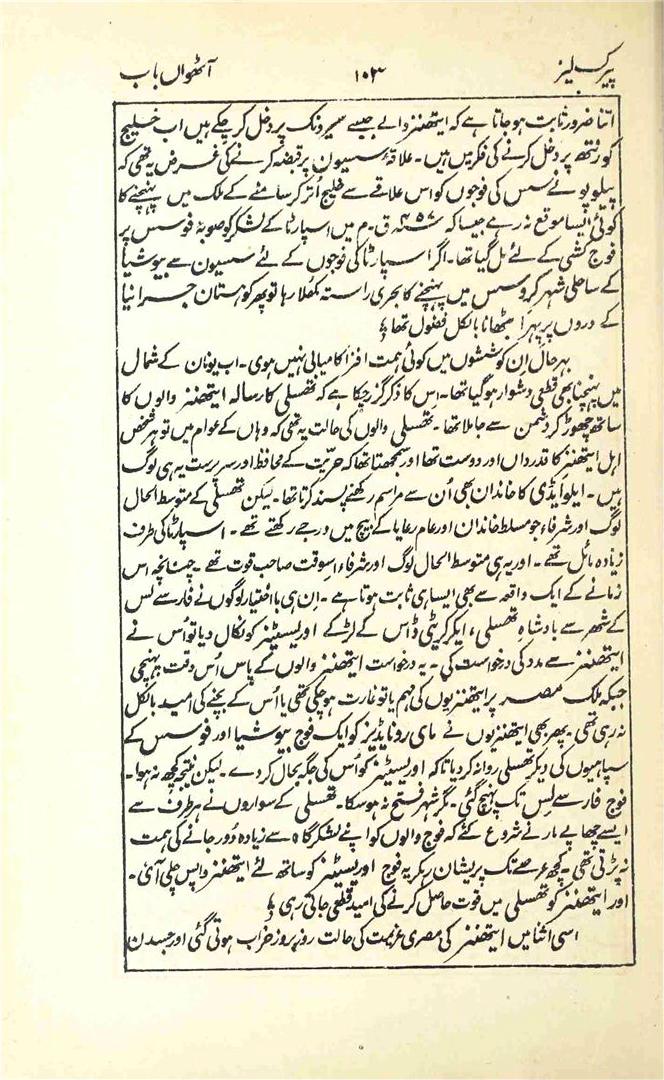 پیرکلیز ۱۰۳ آٹھواں باب
اتنا ضرور ثابت ہوجاتا ہے کہ ایتھنز والے جیسے سیرونک پر دخل کرچکے ہیں اب خلیج
کورنتھ پر دخل کرنے کی فکر میں ہیں۔ علاقۂ سسیون پر قبضہ کرنے کی غرض یہ تھی کہ
پیلوپونے سس کی فوجوں کو اس علاقے سے خلیج اتر کر سامنے کے ملک میں پہنچنے کا
کوئی ایسا موقع نہ رہے جیسا کہ ۴۵۷ ق۔م میں اسپارٹا کے لشکر کو صوبۂ فوسس پر
فوج کشی کے لئے مل گیا تھا۔ اگر اسپارٹا کی فوجوں کے لئے سسیون سے بیوشیا
کے ساحلی شہر کروسس میں پہنچنے کا بحری راستہ کھلا رہا تو پھر کوہستان جرانیا
کے دروں پر پہرا بٹھانا بالکل فضول تھا
بہرحال ان کوششوں میں کوئی ہمت افزا کامیابی نہیں ہوی۔ اب یونان کے شمال
میں پہنچنا بھی قطعی دشوار ہوگیا تھا۔ اس کا ذکر گزرچکا ہے کہ تھسلی کا رسالہ ایتھنز والوں کا
ساتھ چھوڑ کر دشمن سے جاملا تھا۔ تھسلی والوں کی حالت یہ تھی کہ وہاں کے عوام میں تو ہر شخص
اہل ایتھنز کا قدرداں اور دوست تھا اور سمجھتا تھا کہ حریّت کے محافظ اور سرپرست یہ ہی لوگ
ہیں۔ ایلوایڈی کا خاندان بھی اُن سے مراسم رکھنے پسند کرتا تھا۔ لیکن تھسلی کے متوسط الحال
لوگ اور شرفاء جو مسلط خاندان اور عام رعایا کے بیچ میں درجے رکھتے تھے۔ اسپارٹا کی طرف
زیادہ مائل تھے۔ اور یہ ہی متوسط الحال لوگ اور شرفاء اسوقت صاحب قوت تھے۔ چنانچہ اس
زمانے کے ایک واقعہ سے بھی ایسا ہی ثابت ہوتا ہے۔ ان ہی بااختیار لوگوں نے فارسے لس
کے شہر سے بادشاہِ تھسلی، ایکرکریٹی ڈاس کے لڑکے اوریسٹیز کو نکال دیا تو اُس نے
ایتھنز سے مدد کی درخواست کی۔ یہ درخواست ایتھنز والوں کے پاس اُس وقت پہنچی
جبکہ ملک مصر پر ایتھنزیوں کی مہم یا تو غارت ہوچکی تھی یا اُس کے بچنے کی امید بالکل
نہ رہی تھی۔ پھر بھی ایتھنزیوں نے مای رونایڈیز کو ایک فوج بیوشیا اور فوسس کے
سپاہیوں کی دیکر تھسلی روانہ کردیا تاکہ اوریسٹیز کو اُس کی جگہ بحال کردے۔ لیکن نتیجہ کچھ نہ ہوا۔
فوج فارسے لس تک پہنچ گئی۔ مگر شہر فتح نہ ہوسکا۔ تھسلی کے سواروں نے ہر طرف سے
ایسے چھاپے مارنے شروع کئے کہ فوج والوں کو اپنے لشکرگاہ سے زیادہ دُور جانے کی ہمت
نہ پڑتی تھی۔ کچھ عرصے تک پریشان رہکر یہ فوج اوریسٹیز کو ساتھ لئے ایتھنز واپس چلی آئی۔
اور ایتھنز کو تھسلی میں قوت حاصل کرنے کی امید قطعی جاتی رہی
اسی اثنا میں ایتھنز کی مصری عزیمت کی حالت روز بروز خراب ہوتی گئی اور جسدن